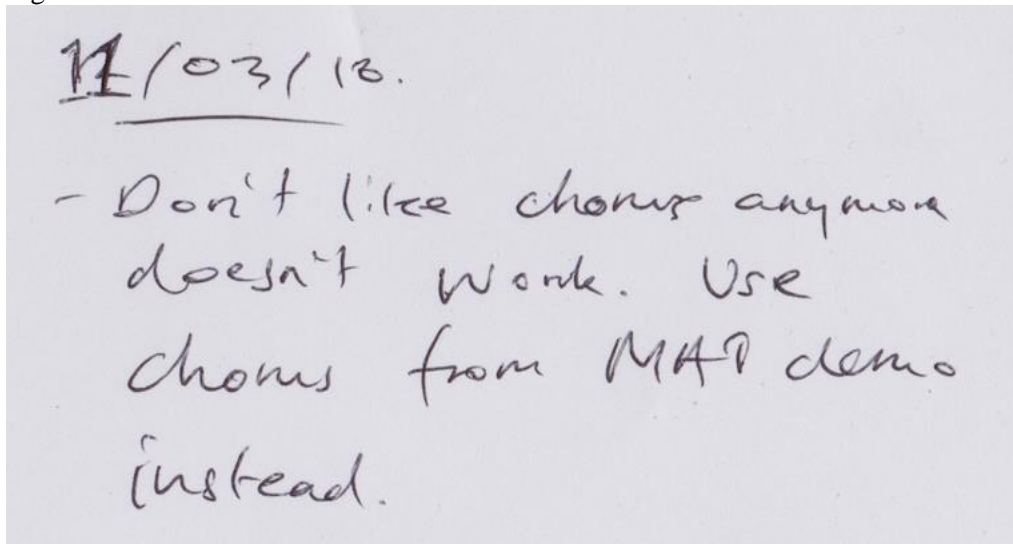 11/03/13.
- Don't like chorus anymore
doesn't work. Use
chorus from MAP demo
instead.